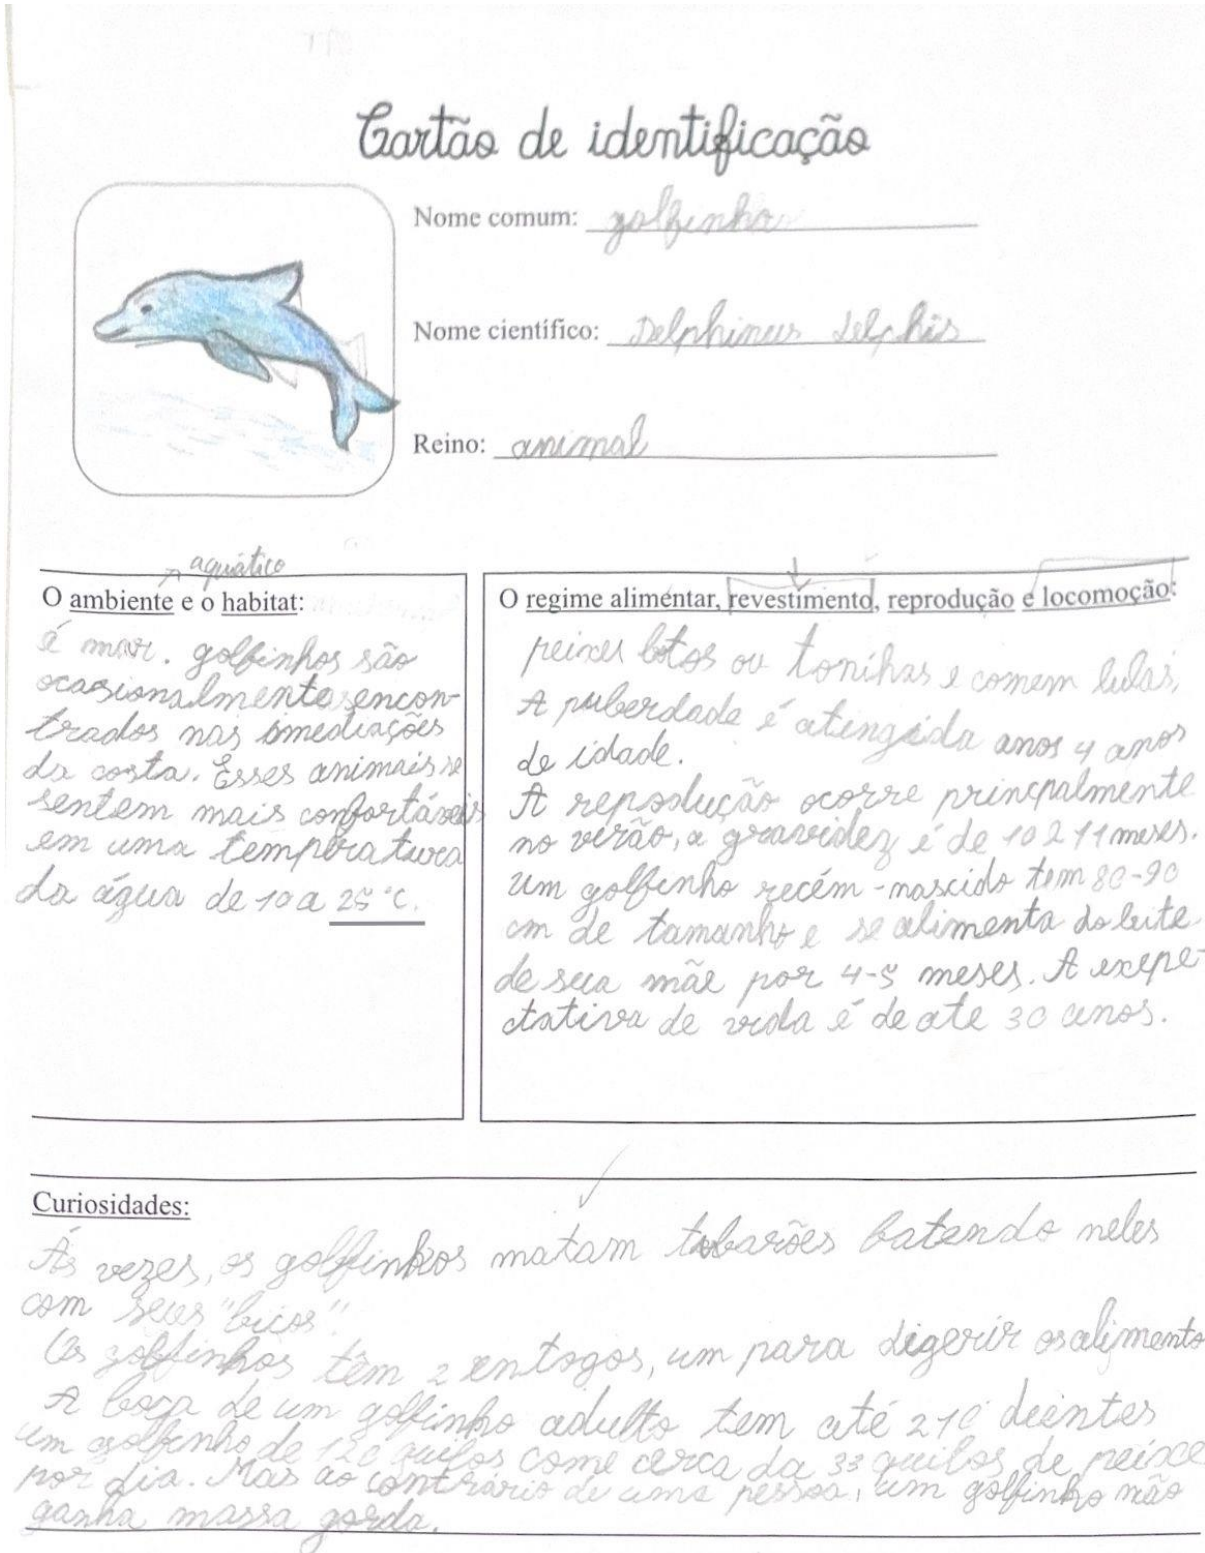 Cartão de identificação
Nome comum: golfinho
Nome científico: Delphineus delphis
Reino: animal
aquático
O ambiente e o habitat:
é mar. golfinhos são
ocasionalmente encon-
trados nas imediações
da costa. Esses animais se
sentem mais confortáveis
em uma temperatura
da água de 10 a 25 °C.
O regime alimentar, revestimento, reprodução e locomoção:
peixes botos ou tonihas e comem lulas,
A puberdade é atingida anos 4 anos
de idade.
A reprodução ocorre princpalmente
no verão, a gravidez é de 10 a 11 meses.
um golfinho recém-nascido tem 80-90
cm de tamanho e se alimenta do leite
de sua mãe por 4-5 meses. A exepe-
ctativa de vida é de ate 30 anos.
Curiosidades:
Ás vezes, os golfinhos matam tubarões batendo neles
com seus "bicos".
Os golfinhos têm 2 entogos, um para digerir os alimento
A boca de um golfinho adulto tem até 210 deentes
um golfinho de 120 quilos come cerca da 33 quilos de peixe
por dia. Mas ao contrário de uma pessoa, um golfinho não
ganha massa gorda.